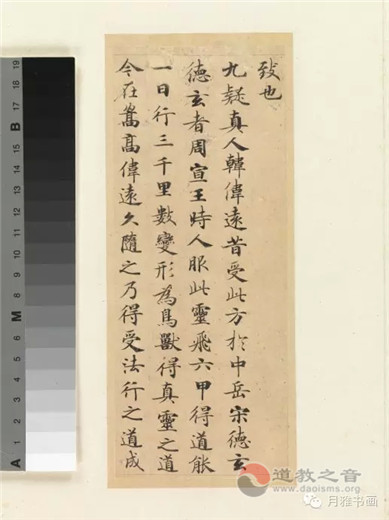 致也
九疑真人韓偉遠昔受此方於中岳宋德玄
德玄者周宣王時人服此靈飛六甲得道能
一日行三千里數變形為鳥獸得真靈之道
今在嵩高偉遠久隨之乃得受法行之道成
A 1 2 3 4 5 6 M 8 9 10 11 12 13 14 15 B 17 18 19
道教之音
www.daoisms.org
月雅书画